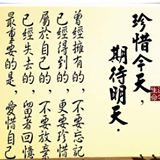 珍惜今天,
期待明天.
曾經擁有的,不要忘記
已經得到的,更要珍惜
屬於自己的,不要放棄
已經失去的,留者回憶
最重要的是,愛惜自己